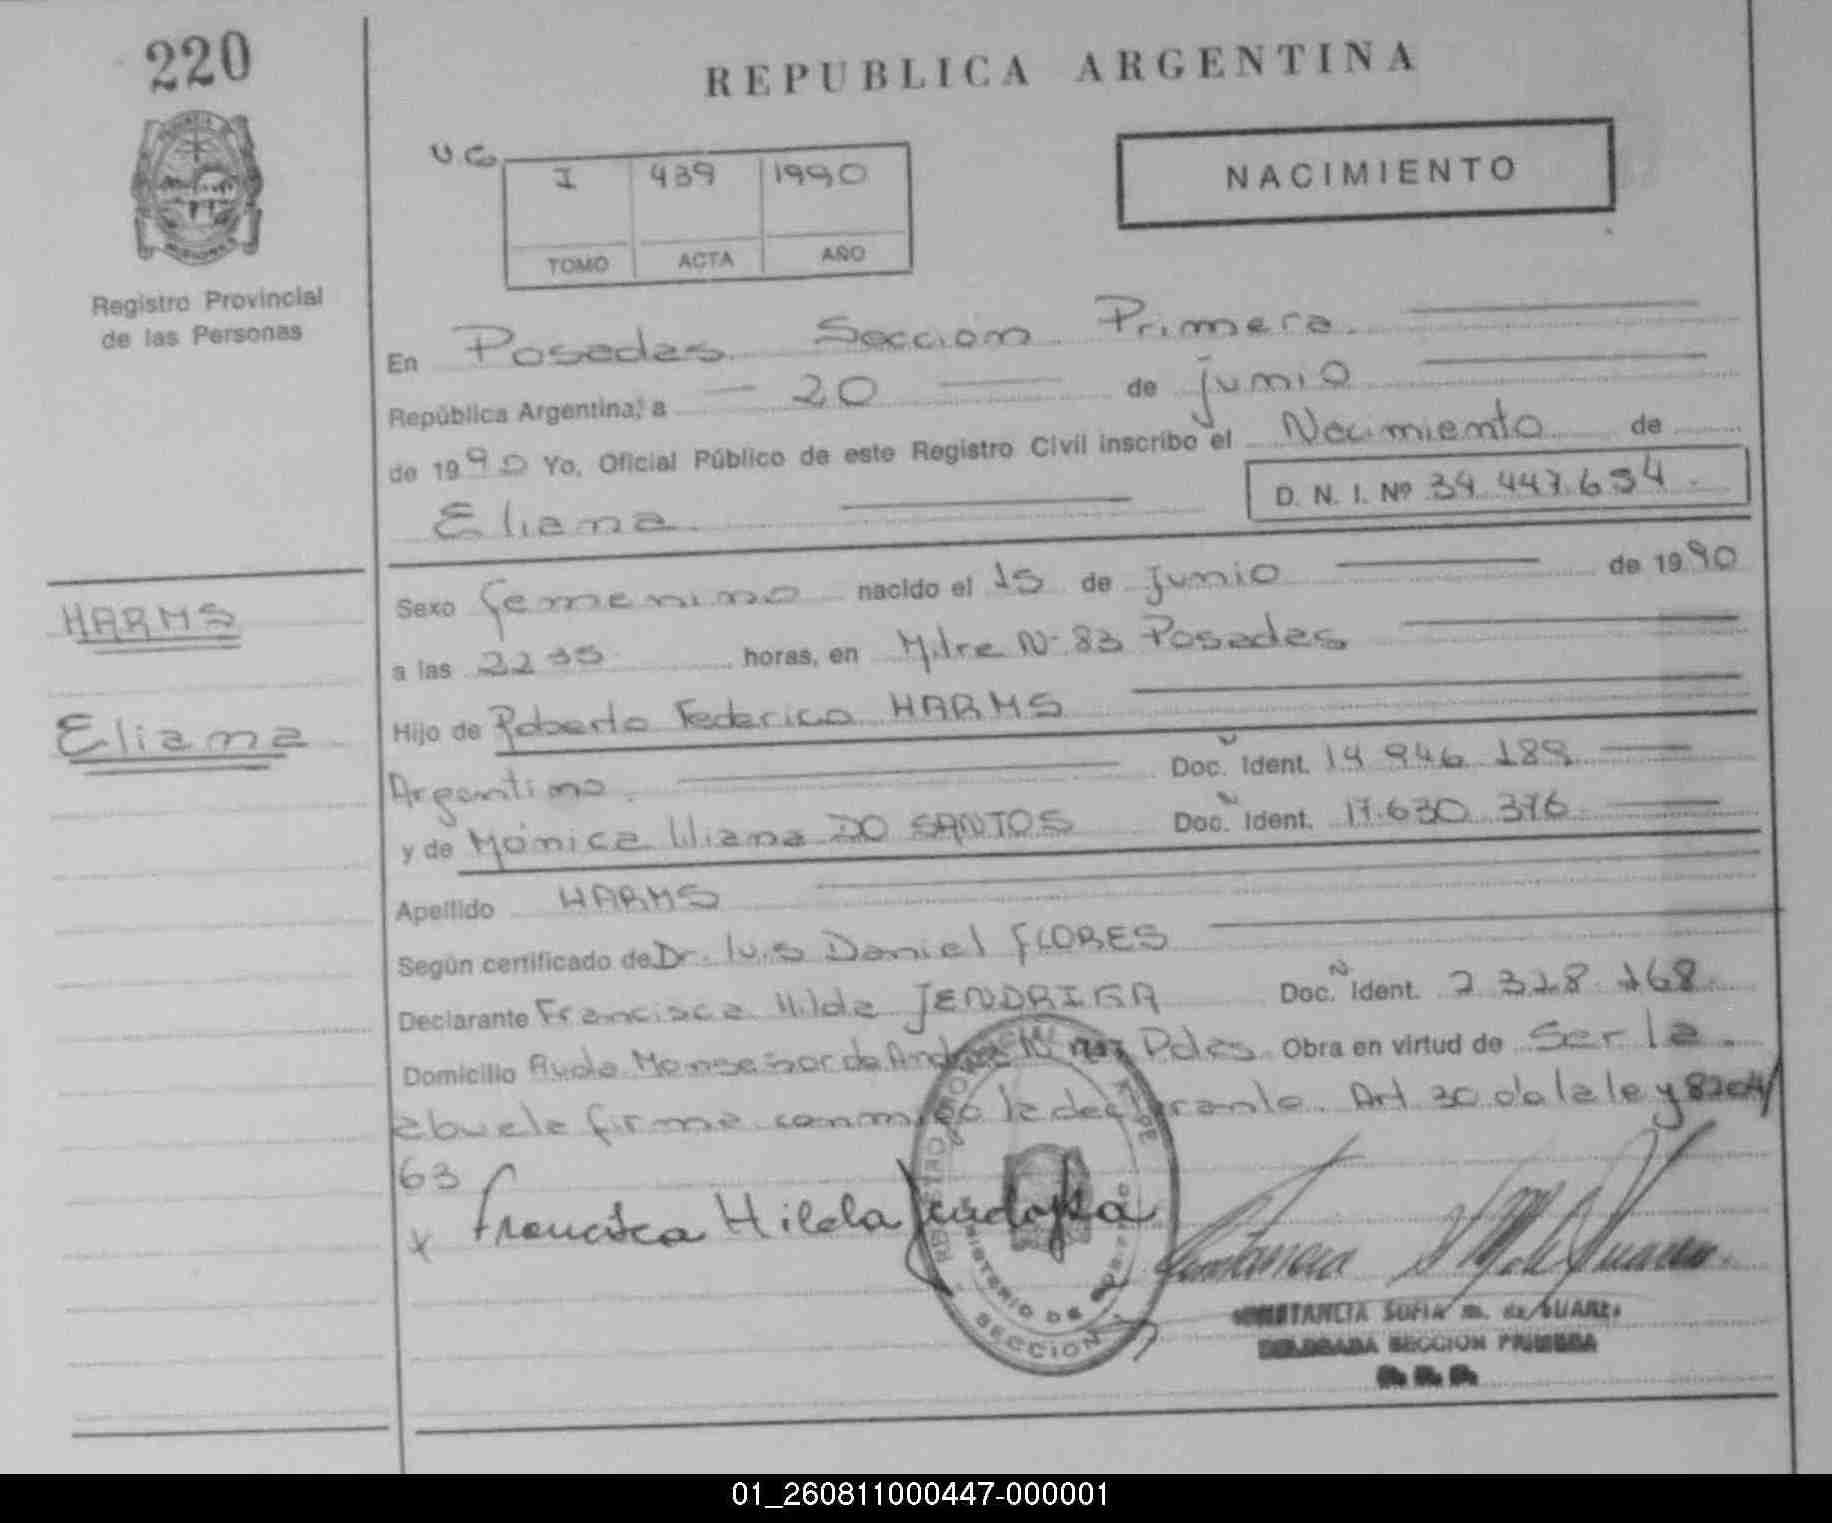 220
REPUBLICA ARGENTINA
I 439 1990
TOMO ACTA AÑO
NACIMIENTO
Registro Provincial
de las Personas
En Posadas Sección Primera.
República Argentina, a 20 de junio
de 1990 Yo, Oficial Público de este Registro Civil inscribo el Nacimiento de
Eliana
D. N. I. Nº 34.447.634.
HARMS
Eliana
Sexo femenino nacido el 15 de junio de 1990
a las 2235 horas, en Mitre Nº 83 Posadas
Hijo de Roberto Federico HARMS
Argentino. Doc. Ident. 14 946 189
y de Mónica liliana DO SANTOS Doc. Ident. 17.630 376
Apellido HARMS
Según certificado de Dr. luis Daniel FLORES
Declarante Francisca Hilda Doc. Ident. 2 328 768
Domicilio Avda Obra en virtud de ser la
abuela firma conmigo la declarante. Art 30 de la ley 8204/
63
x Francisca Hilda
SECCION
CONSTANCIA SOFIA M. de SUAREZ
DELEGADA SECCION PRIMERA
01_260811000447-000001